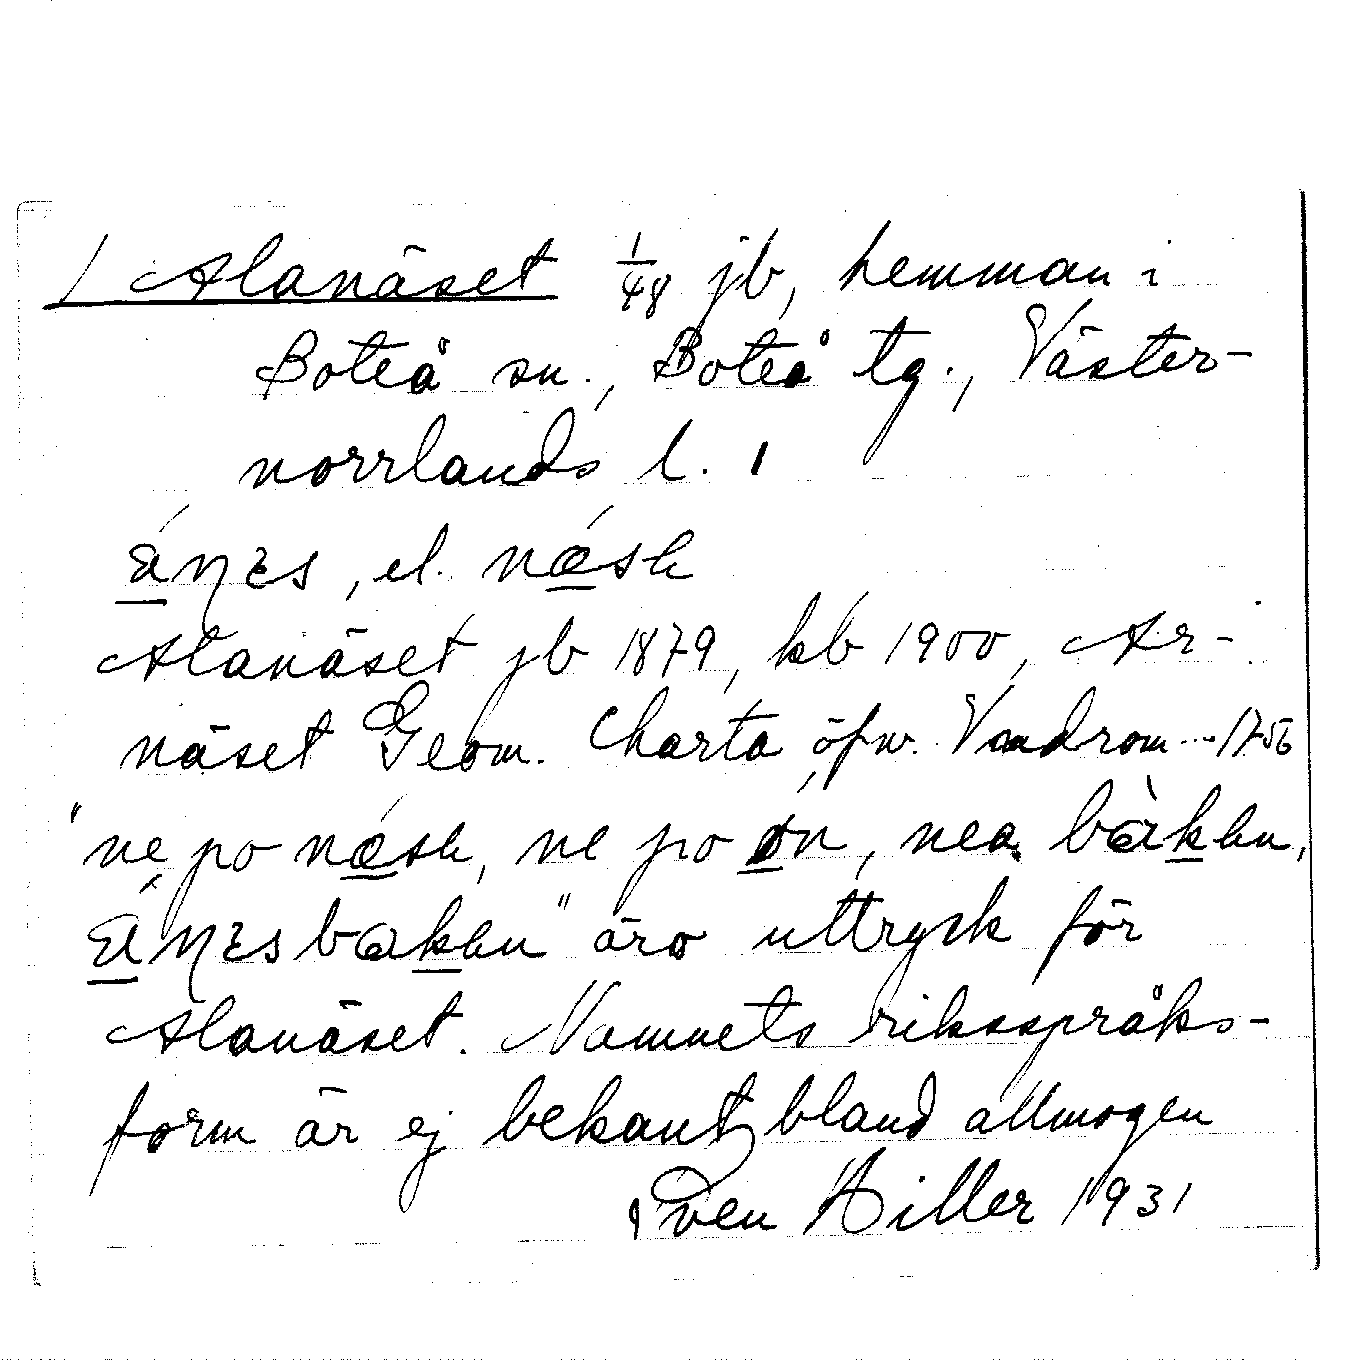 / Alanäset 1/48 jb, hemman i
Boteå sn., Boteå tg., Väster-
norrlands l. 1
el. næsh
Alanäset jb 1879, kb 1900, Ar-
näset Geom. Charta öfw. Vandrom...1756
"ne po næsh, ne po øn, nea
" äro uttryck för
Alanäset. Namnets riksspråks-
form är ej bekant bland allmogen
Sven Hiller 1931